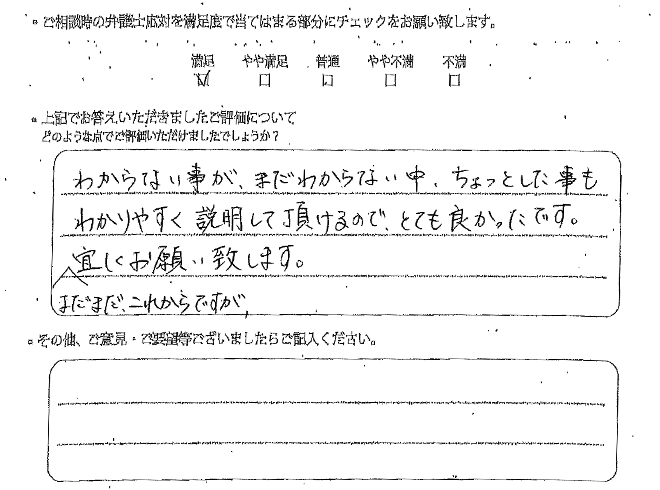 ・ご相談時の弁護士応対を満足度で当てはまる部分にチェックをお願い致します。
満足 やや満足 普通 やや不満 不満
☑ □ □ □ □
・上記でお答えいただきましたご評価について
どのような点でご評価いただけましたでしょうか？
わからない事が、まだわからない中、ちょっとした事も
わかりやすく説明して頂けるので、とても良かったです。
宜しくお願い致します。
まだまだ、これからですが、
・その他、ご意見・ご要望等ございましたらご記入ください。